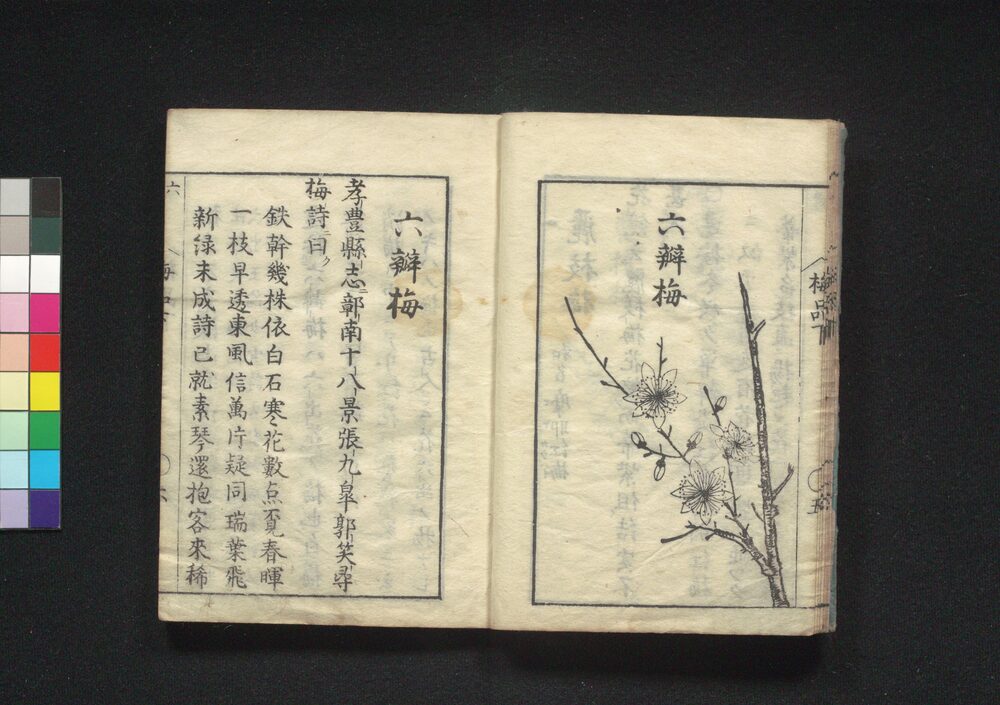 六瓣梅
梅品
五
六瓣梅
孝豊縣志鄣南十八景張九皐郭笑尋
梅詩曰
鉄幹幾株依白石寒花數点覓春暉
一枝早透東風信萬片疑同瑞葉飛
新緑未成詩已就素琴還抱客來稀
六